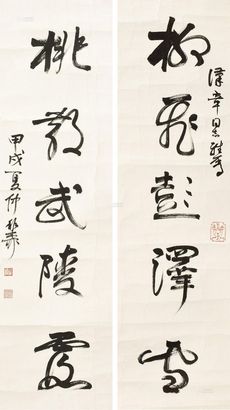 漢章
柳飛彭澤雪
桃散武陵霞
甲戌夏仲